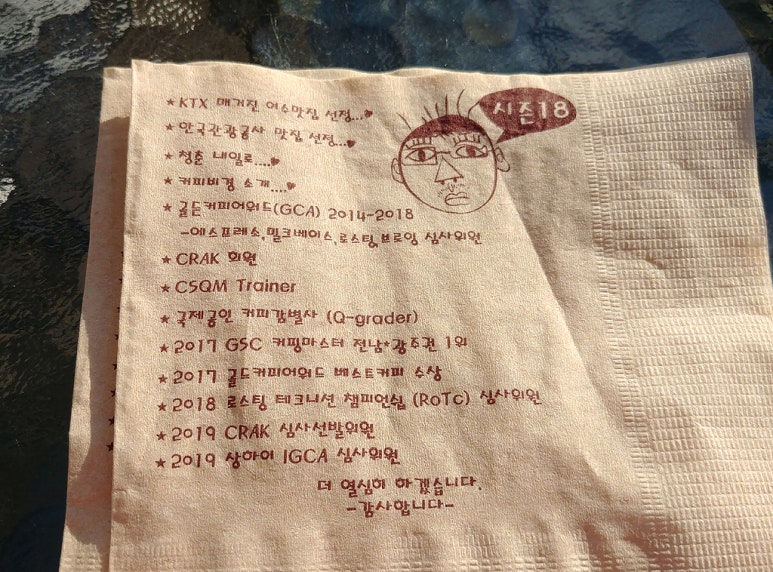 시즌18
★ KTX 매거진 여수맛집 선정...♥
★ 한국관광공사 맛집 선정...♥
★ 청춘 내일로....♥
★ 커피비경 소개....♥
★ 골든커피어워드(GCA) 2014-2018
-에스프레소,밀크베이스,로스팅,브로잉 심사위원
★ CRAK 회원
★ CSQM Trainer
★ 국제공인 커피감별사 (Q-grader)
★ 2017 GSC 커핑마스터 전남*광주권 1위
★ 2017 골드커피어워드 베스트커피 수상
★ 2018 로스팅 테크니션 챔피언쉽 (RoTc) 심사위원
★ 2019 CRAK 심사선발위원
★ 2019 상하이 IGCA 심사위원
더 열심히 하겠습니다.
-감사합니다-